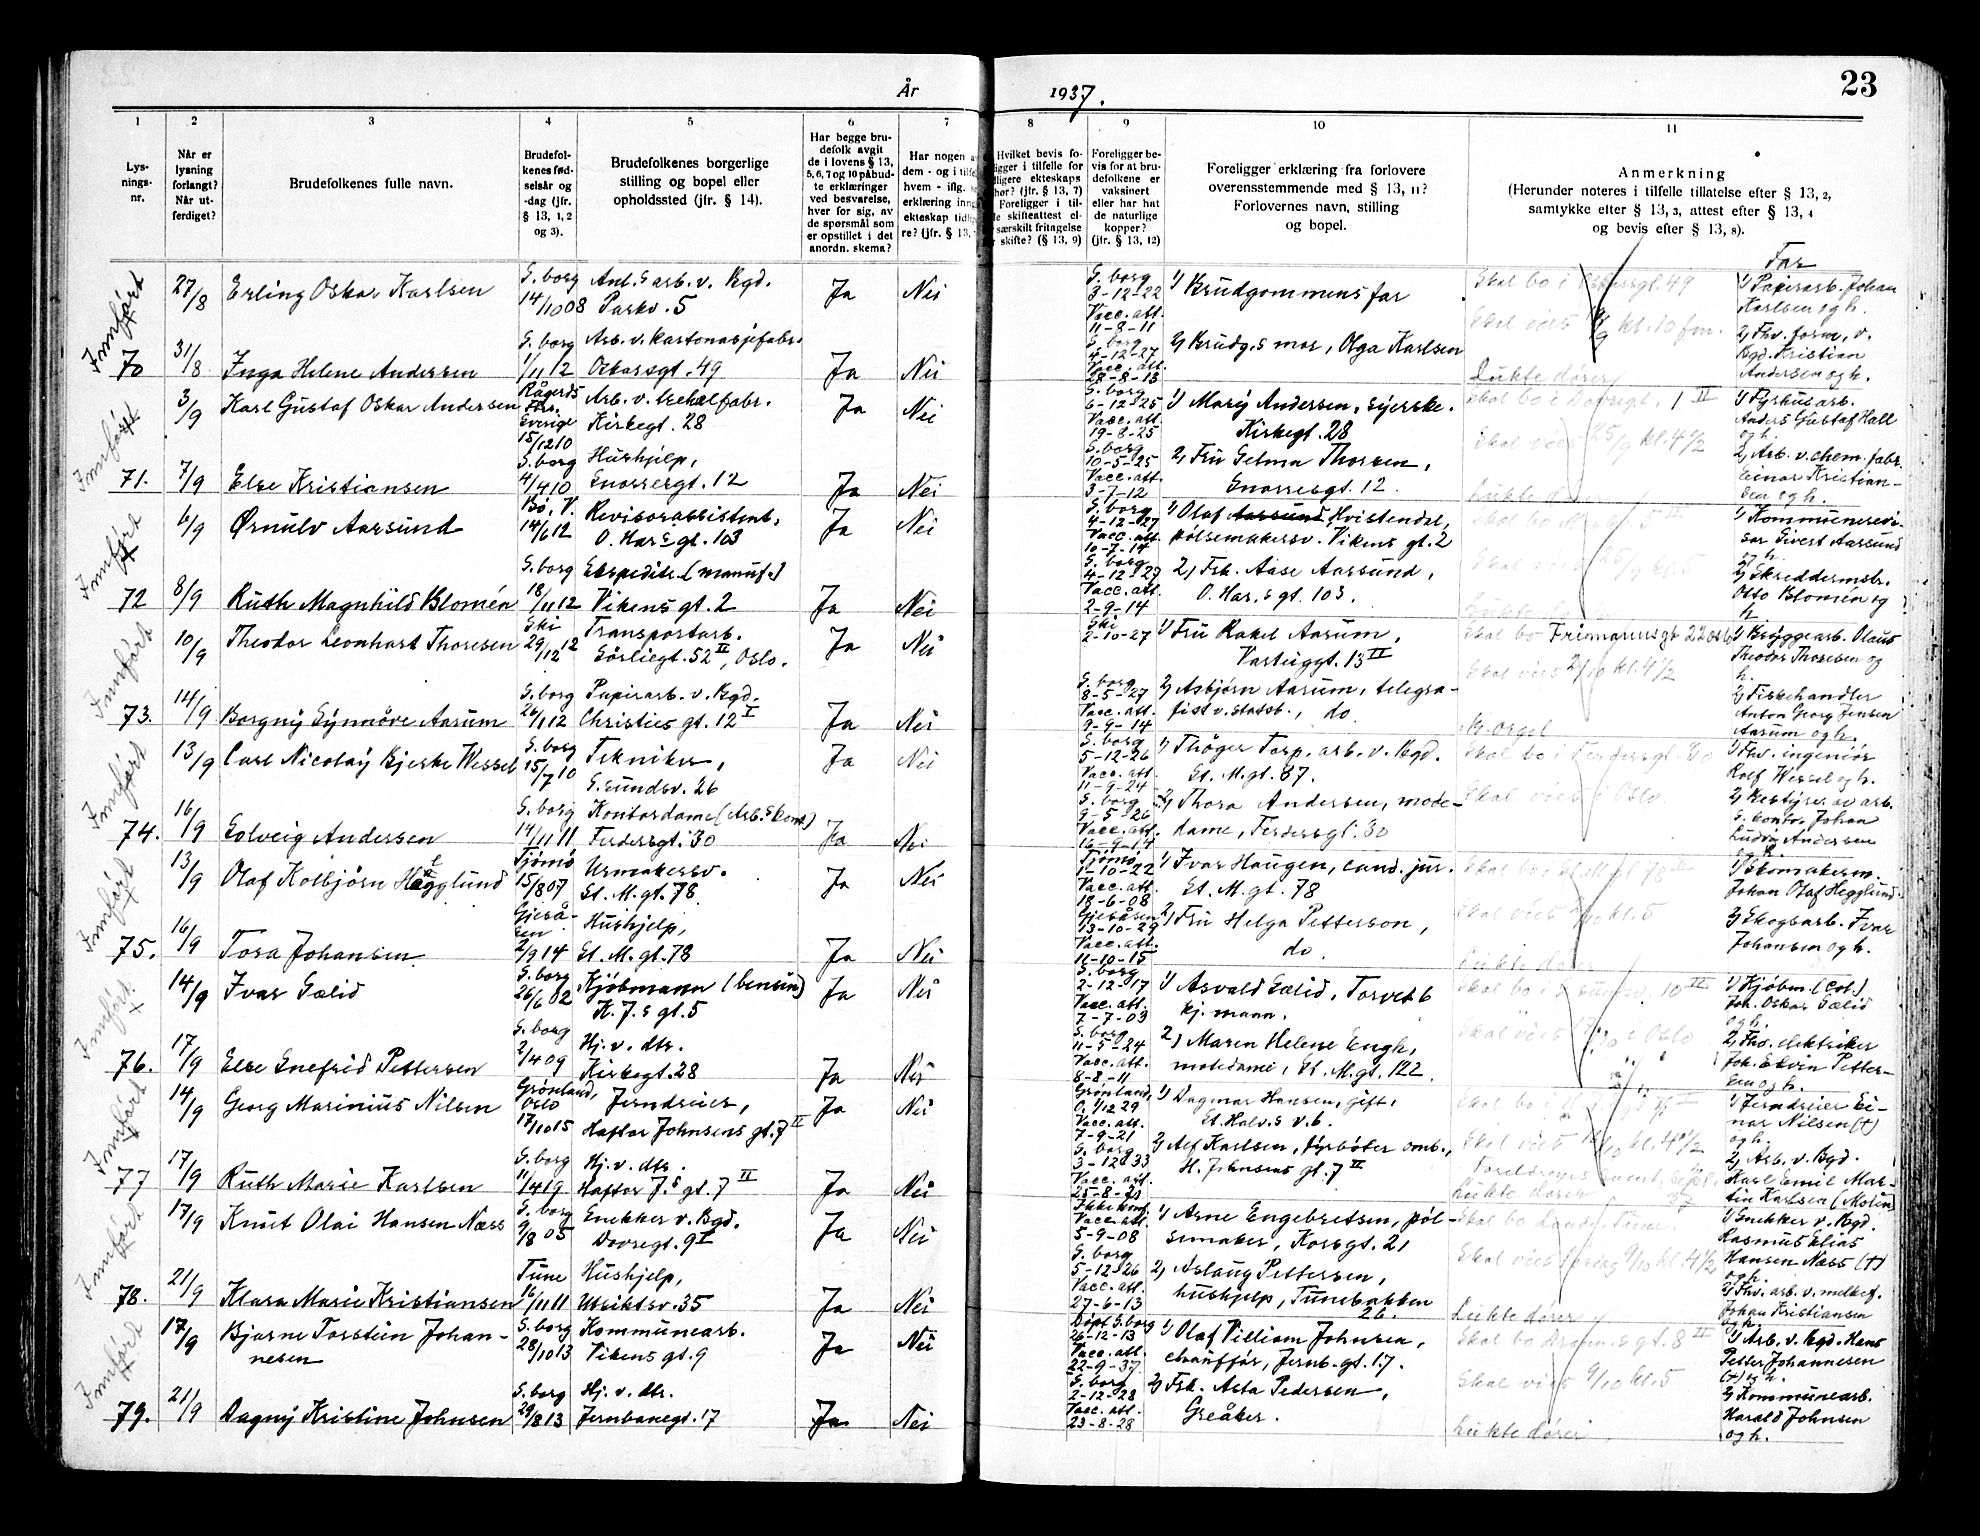 År
1937.
23
1
2
3
4
5
6
7
8
9
10
11
Lys-
nings-
nr.
Når er
lysning
forlangt?
Når ut-
ferdiget?
Brudefolkenes fulle navn.
Brudefol-
kenes fød-
selsår og
-dag (jfr.
§ 13, 1, 2
og 3).
Brudefolkenes borgerlige
stilling og bopel eller
opholdssted (jfr. § 14).
Har begge bru-
defolk avgit
de i lovens § 13,
5, 6, 7 og 10 påbud-
te erklæringer
ved besvarelse,
hver for sig, av
de spørsmål som
er opstillet i det
anordn. skema?
Har nogen a
dem - og i tilfe
hvem - iflg.
erklæring inng
ekteskap tidlig
re? (jfr. § 13,
Hvilket bevis fo-
ligger i tilfelle for
dligere ekteskaps
hør? (jfr. § 13, 7)
Foreligger i til-
le skifteattest el-
særskilt fritagelse
skifte? (§ 13, 9)
Foreligger be-
vis for at bru-
defolkene er
vaksinert
eller har hat
de naturlige
kopper?
(jfr. § 13, 12)
Foreligger erklæring fra forlovere
overensstemmende med § 13, 11?
Forlovernes navn, stilling
og bopel.
Anmerkning
(Herunder noteres i tilfelle tillatelse efter § 13, 2,
samtykke efter § 13, 3, attest efter § 13, 4
og bevis efter § 13, 8).
Far
Innført
27/8
Erling Oskar Karlsen
S. borg
14/10 08
Anl.s arb. v. Bgd.
Parkv. 5
Ja
Nei
S. borg
3-12-22
Vacc. att.
11-8-11
1) Brudgommens far
Skal bo i Oskarsgt. 49
Skal vies kl. 10 fm.
1) Papirarb. Johan
Karlsen og h.
70
31/8
Inga Helene Andersen
S. borg
1/11 12
Arb. v. kartonasjefabr.
Oskarsgt. 49
Ja
Nei
S. borg
4-12-27
Vacc. att.
28-8-13
2) Brudg.s mor, Olga Karlsen
Lukte dører
2) Fhv. form. v.
Bgd. Kristian
Andersen og h.
Innført
3/9
Karl Gustaf Oskar Andersen
Sverige
15/12 10
Kirkegt. 28
Ja
Nei
S. borg
6-12-25
Vacc. att.
19-8-25
1) Mary Andersen, syerske.
Kirkegt. 28
Skal bo i Dovregt. 1 II
Skal vies 25/9 kl. 4 1/2
1) Fyrhusarb.
Anders Gustaf Hall
og h.
71.
7/9
Else Kristiansen
S. borg
4/4 10
Hushjelp,
Snorresgt. 12
Ja
Nei
S. borg
10-5-25
Vacc. att.
3-7-12
2) Fru Selma Thorsen,
Snorresgt. 12.
Lukte dører
2) Arb. v. chem. fabr.
Einar Kristian-
sen og h.
Innført
6/9
Ørnulv Aarsund
Bö, V.
14/6 12
Revisorassistent,
O. Har.s gt. 103
Ja
Nei
S. borg
4-12-27
Vacc. att.
10-7-14
1) Olaf Aarsund Hvistendal,
pølsemakersv. Vikens gt. 2
1) Kommunerevi-
sor Sivert Aarsund
og h.
72
8/9
Ruth Magnhild Blomén
S. borg
18/11 12
Ekspeditr. (manuf.)
Vikens gt. 2
Ja
Nei
S. borg
4-12-27
Vacc. att.
2-9-14
2) Frk. Aase Aarsund,
O. Har.s gt. 103.
2) Skreddermstr.
Otto Blomén og
h.
Innført
10/9
Theodor Leonhart Thoresen
Ski
29/12 12
Transportarb.
Sörliegt. 52 II, Oslo.
Ja
Nei
Ski
2-10-27
1) Fru Rakel Aarum,
Varteiggt. 13 II
Skal bo Frimannsgt 22 Oslo
Skal vies 2/10 kl. 4 1/2
1) Bryggearb. Olaus
Theodor Thoresen og
h.
73.
14/9
Borgny Synnöve Aarum
S. borg
26/1 12
Papirarb. v. Bgd.
Christies gt. 12 I
Ja
Nei
S. borg
8-5-27
Vacc. att.
9-9-14
2) Asbjørn Aarum, telegra-
fist v. statsb., do
M. orgel
2) Fiskehandler
Anton Georg Jensen
Aarum og h.
Innført
13/9
Carl Nicolay Bjerke Wessel
S. borg
15/7 10
Tekniker,
G. sundsv. 26
Ja
Nei
S. borg
5-12-26
Vacc. att.
11-9-24
1) Thöger Torp, arb. v. Bgd.
St. M.gt. 87.
Skal bo i Ferdersgt. 30
Skal vies i Oslo.
1) Fhv. ingeniör
Rolf Wessel og h.
74.
16/9
Solveig Andersen
S. borg
14/11 11
Kontordame (Arb.s kont.)
Ferdersgt. 30
Ja
Nei
S. borg
9-5-26
Vacc. att.
16-9-14
2) Thora Andersen, mote-
dame, Ferdersgt. 30
2) Bestyrer av arb.
s. kontor Johan
Ludvig Andersen
og h.
Innført
13/9
Olaf Kolbjörn Hegglund
Tjömö
15/8 07
Urmakersv.
St. M.gt. 78
Ja
Nei
Tjömö
1-10-22
Vacc. att.
18-6-08
1) Ivar Haugen, cand. jur.
St. M.gt. 78
1) Skomakerm.
Johan Olaf Hegglund.
75.
16/9
Tora Johansen
Gjeså-
sen
2/9 14
Hushjelp,
St. M.gt. 78
Ja
Nei
Gjesåsen
13-10-29
Vacc. att.
11-10-15
2) Fru Helga Petterson,
do.
Lukte dører
2) Skogsarb. Ivar
Johansen og h.
Innført
14/9
Ivar Sælid
S. borg
26/6 02
Kjöbmann (bensin)
K. J.s gt. 5
Ja
Nei
S. borg
2-12-17
Vacc. att.
7-7-03
1) Asvald Sælid, Torvet 6
kj. mann.
1) Kjöbm. (col.)
Joh. Oskar Sælid
og h.
76.
17/9
Else Snefrid Pettersen
S. borg
2/4 09
Hj. v. dtr.
Kirkegt. 28
Ja
Nei
S. borg
11-5-24
Vacc. att.
8-8-11
2) Maren Helene Engh,
motedame, St. M.gt. 122.
2) Fhv. elektriker
Joh. Edvin Petter-
sen og h.
Innført
14/9
Georg Marinius Nilsen
Grønland,
Oslo
17/10 15
Jerndreier,
Haftor Johnsens gt. 7 II
Ja
Nei
Grønland,
O. 1/12 29
Vacc. att.
7-9-21
1) Dagmar Hansen, gift,
St. Halv.s v. 6
1) Jerndreier Ei-
nar Nilsen (†)
og h.
77
17/9
Ruth Marie Karlsen
S. borg
11/4 19
Hj. v. dtr.
Haftor J.s gt. 7 II
Ja
Nei
S. borg
3-12-33
Vacc. att.
25-8-21
2) Alf Karlsen, fyrbøter omb.,
H. Johnsens gt. 7 II
Lukte dører
2) Arb. v. Bgd.
Karl Emil Mar-
tin Karlsen (Molin)
Innført
17/9
Knut Olai Hansen Næss
S. borg
9/8 05
Snekker v. Bgd.
Dovregt. 9 I
Ja
Nei
Ikke konf.
Vacc. att.
5-9-08
1) Arne Engebretsen, pøl-
semaker, Korsgt. 21
1) Snekker v. Bgd.
Rasmus Elias
Hansen Næss (†)
og h.
78.
21/9
Klara Marie Kristiansen
Tune
16/11 11
Hushjelp,
Utsiktsv. 35
Ja
Nei
S. borg
5-12-26
Vacc. att.
27-6-13
2) Aslaug Pettersen,
hushjelp, Tunebakken
26.
Lukte dører
2) Fhv. arb. v. melkef.
Johan Kristiansen
og h.
Innført
17/9
Bjarne Torstein Johan-
nesen
S. borg
28/10 13
Kommunearb.
Vikens gt. 9
Ja
Nei
Døpt S. borg
26-12-13
Vacc. att.
22-9-37
1) Olaf William Johnsen,
chauffør, Jernb. gt. 17.
Skal bo Dronn.s gt. 8 II
Skal vies 9/10 kl. 5
1) Arb. v. Bgd. Hans
Petter Johannesen
(†) og h.
79.
21/9
Dagny Kristine Johnsen
S. borg
29/8 13
Hj. v. dtr.
Jernbanegt. 17
Ja
Nei
S. borg
2-12-28
Vacc. att.
23-8-28
2) Frk. Asta Pedersen,
Greåker.
Lukte dører
2) Kommunearb.
Harald Johnsen
og h.